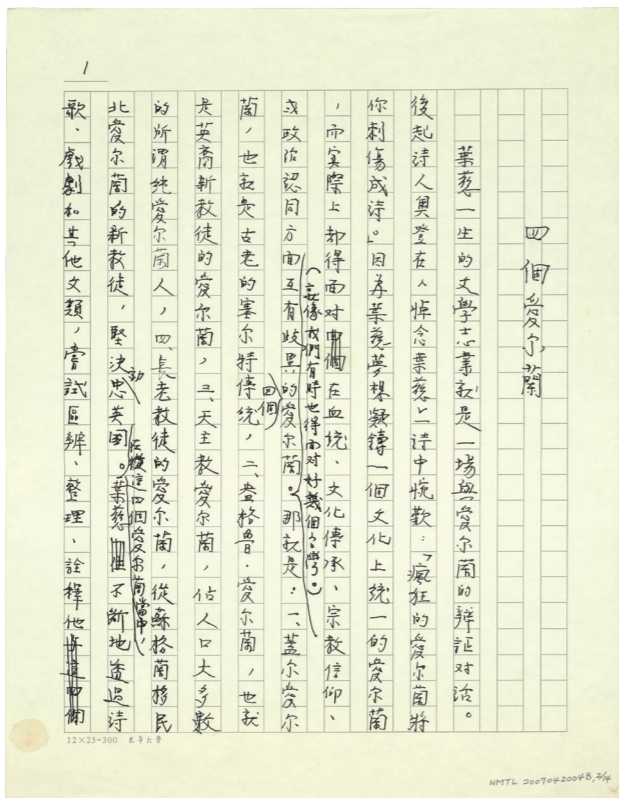 1
四個愛尔蘭
葉慈一生的文學志業就是一場與愛尔蘭的辯証对话。
後起詩人奧登在〈悼念葉慈〉一詩中惋歎：「瘋狂的愛尔蘭將
你刺傷成詩。」因為葉慈夢想凝鑄一個文化上統一的愛尔蘭
，而实際上却得面对四個在血統、文化傳承、宗教信仰、
（就像我們有時也得面对好幾個台灣。）
或政治認同方面互有歧異的四個愛尔蘭。那就是：一、蓋尔愛尔
蘭，也就是古老的塞尔特傳統，二、盎格魯·愛尔蘭，也就
是英裔新教徒的愛尔蘭，三、天主教愛尔蘭，佔人口大多數
的所謂純愛尔蘭人，四、長老教徒的愛尔蘭，從蘇格蘭移民
北愛尔蘭的新教徒，堅決効忠英国。葉慈
在這四個愛尔蘭當中，
不断地透過詩
歌、戲劇和其他文類，嘗試區辨、整理、詮釋他与這四個
12×25=300 東華大學
NMTL 20070420048, 2/14